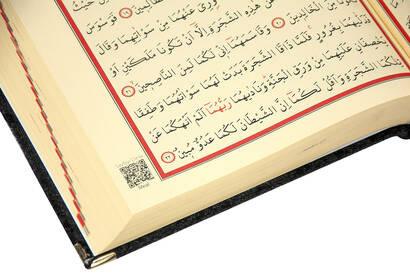 حَيْثُ
الظَّالِمِينَ ١٩ فَوَسْوَسَ
وُرِيَ عَنْهُمَا مِنْ سَوْاٰتِهِمَا وَقَالَ
عَنْ هٰذِهِ الشَّجَرَةِ اِلَّٓا اَنْ تَكُونَا مَلَكَيْنِ اَوْ
مِنَ الْخَالِدِينَ ٢٠ وَقَاسَمَهُمَٓا اِنِّي لَكُمَا لَمِنَ النَّاصِحِينَ ٢١
فَدَلّٰيهُمَا بِغُرُورٍ فَلَمَّا ذَاقَا الشَّجَرَةَ بَدَتْ لَهُمَا سَوْاٰتُهُمَا وَطَفِقَا
يَخْصِفَانِ عَلَيْهِمَا مِنْ وَرَقِ الْجَنَّةِ وَنَادٰيهُمَا رَبُّهُمَٓا اَلَمْ اَنْهَكُمَا عَنْ
تِلْكُمَا الشَّجَرَةِ وَاَقُلْ لَكُمَٓا اِنَّ الشَّيْطَانَ لَكُمَا عَدُوٌّ مُبِينٌ ٢٢